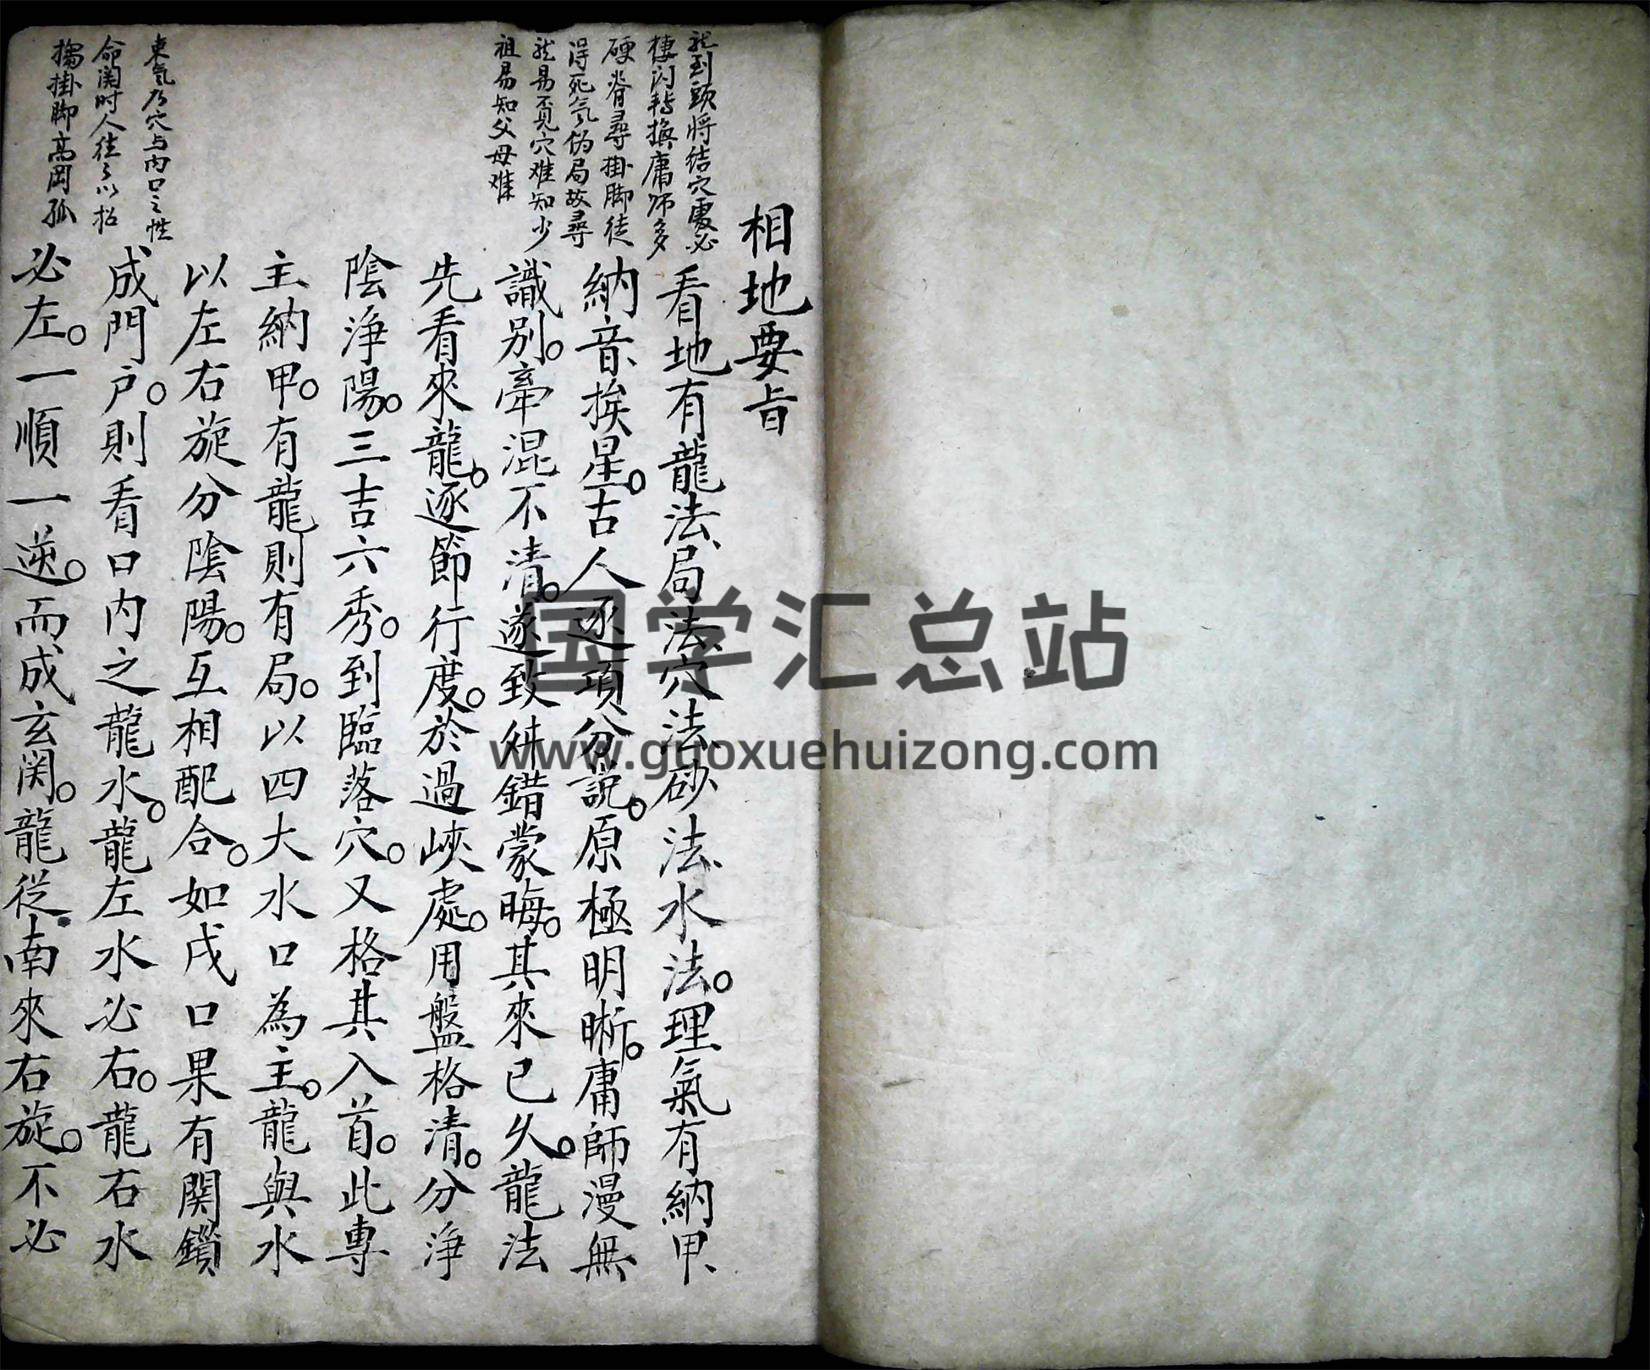 相地要旨
看地有龍法局法穴法砂法水法。理氣有納甲
納音挨星。古人逐項分說。原極明晰。庸師漫無
識別。牽混不清。遂致舛錯蒙晦。其來已久。龍法
先看來龍。逐節行度。於過峽處。用盤格清。分淨
陰淨陽。三吉六秀。到臨落穴。又格其入首。此專
主納甲。有龍則有局。以四大水口為主。龍與水
以左右旋分陰陽。互相配合。如戌口果有関鎖
成門户。則看口內之龍水。龍左水必右。龍右水
必左。一順一逆。而成玄関。龍從南來右旋。不必
龙到頭将结穴處必
棲闪转換庸师多
硬脊尋掛脚徒
得死气伪局故尋
龙易覓穴难知少
祖易知父母难
東氣乃穴与內口之性
命関时人往々以松
掛脚高岡孤
国学汇总站
www.guoxuehuizong.com